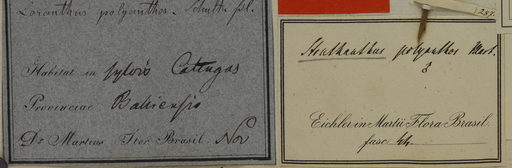 Loranthus polyanthos. Schult. fl.
Habitat in sylvis Catingas
Provinciae Bahiensis
Dr. Martius Iter Brasil. Nov
287.
Struthanthus polyanthos Mart.
Eichler in Martii Flora Brasil
fasc. 44.